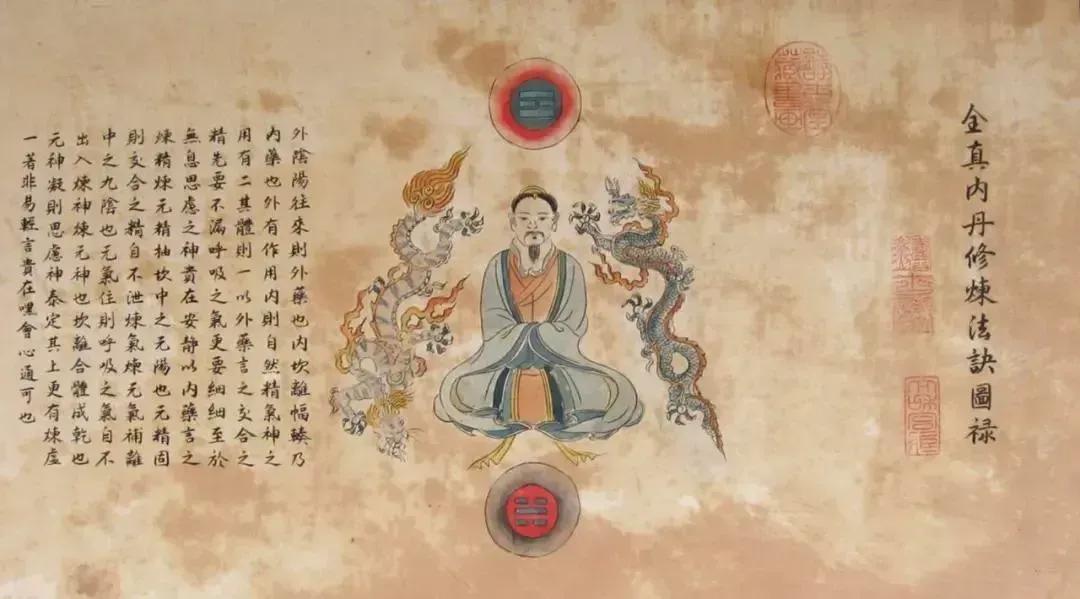 全真内丹修煉法訣圖禄
外陰陽往來則外藥也内坎離幅輳乃
内藥也外有作用内則自然精氣神之
用有二其體則一以外藥言之交合之
精先要不漏呼吸之氣更要細細至於
無息思慮之神貴在安静以内藥言之
煉精煉元精抽坎中之元陽也元精固
則交合之精自不泄煉氣煉元氣補離
中之九陰也元氣住則呼吸之氣自不
出入煉神煉元神也坎離合體成乾也
元神凝則思慮神泰定其上更有煉虛
一著非易輕言貴在嘿會心通可也